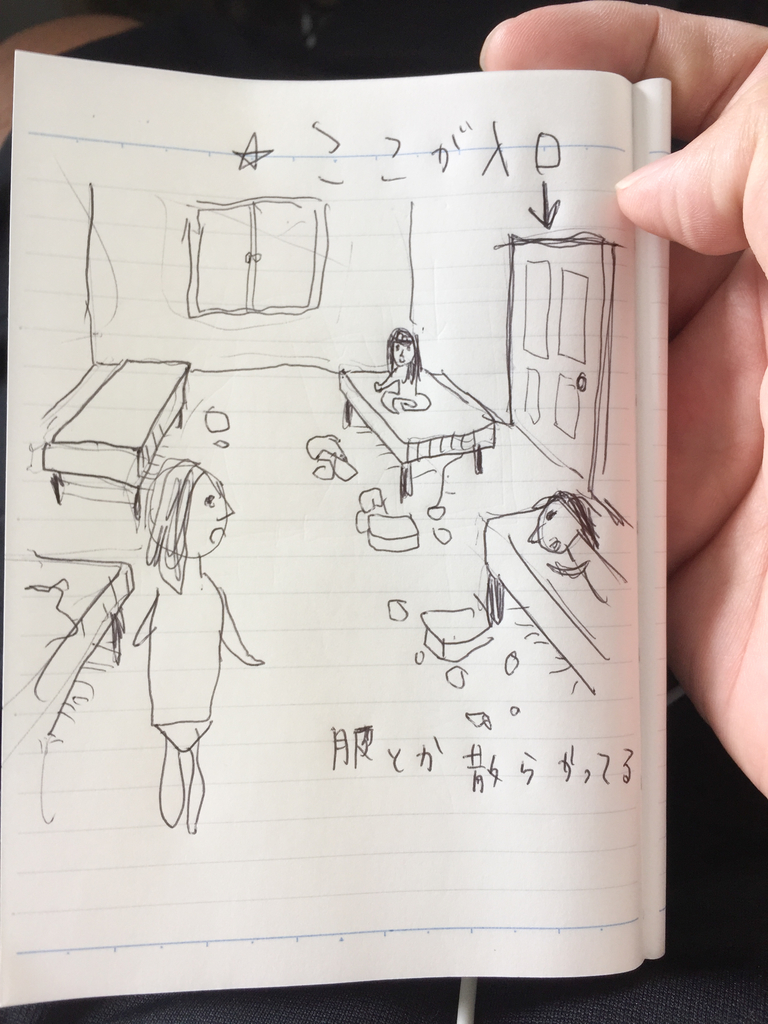 ☆ ここが入口
↓
服とか散らかってる